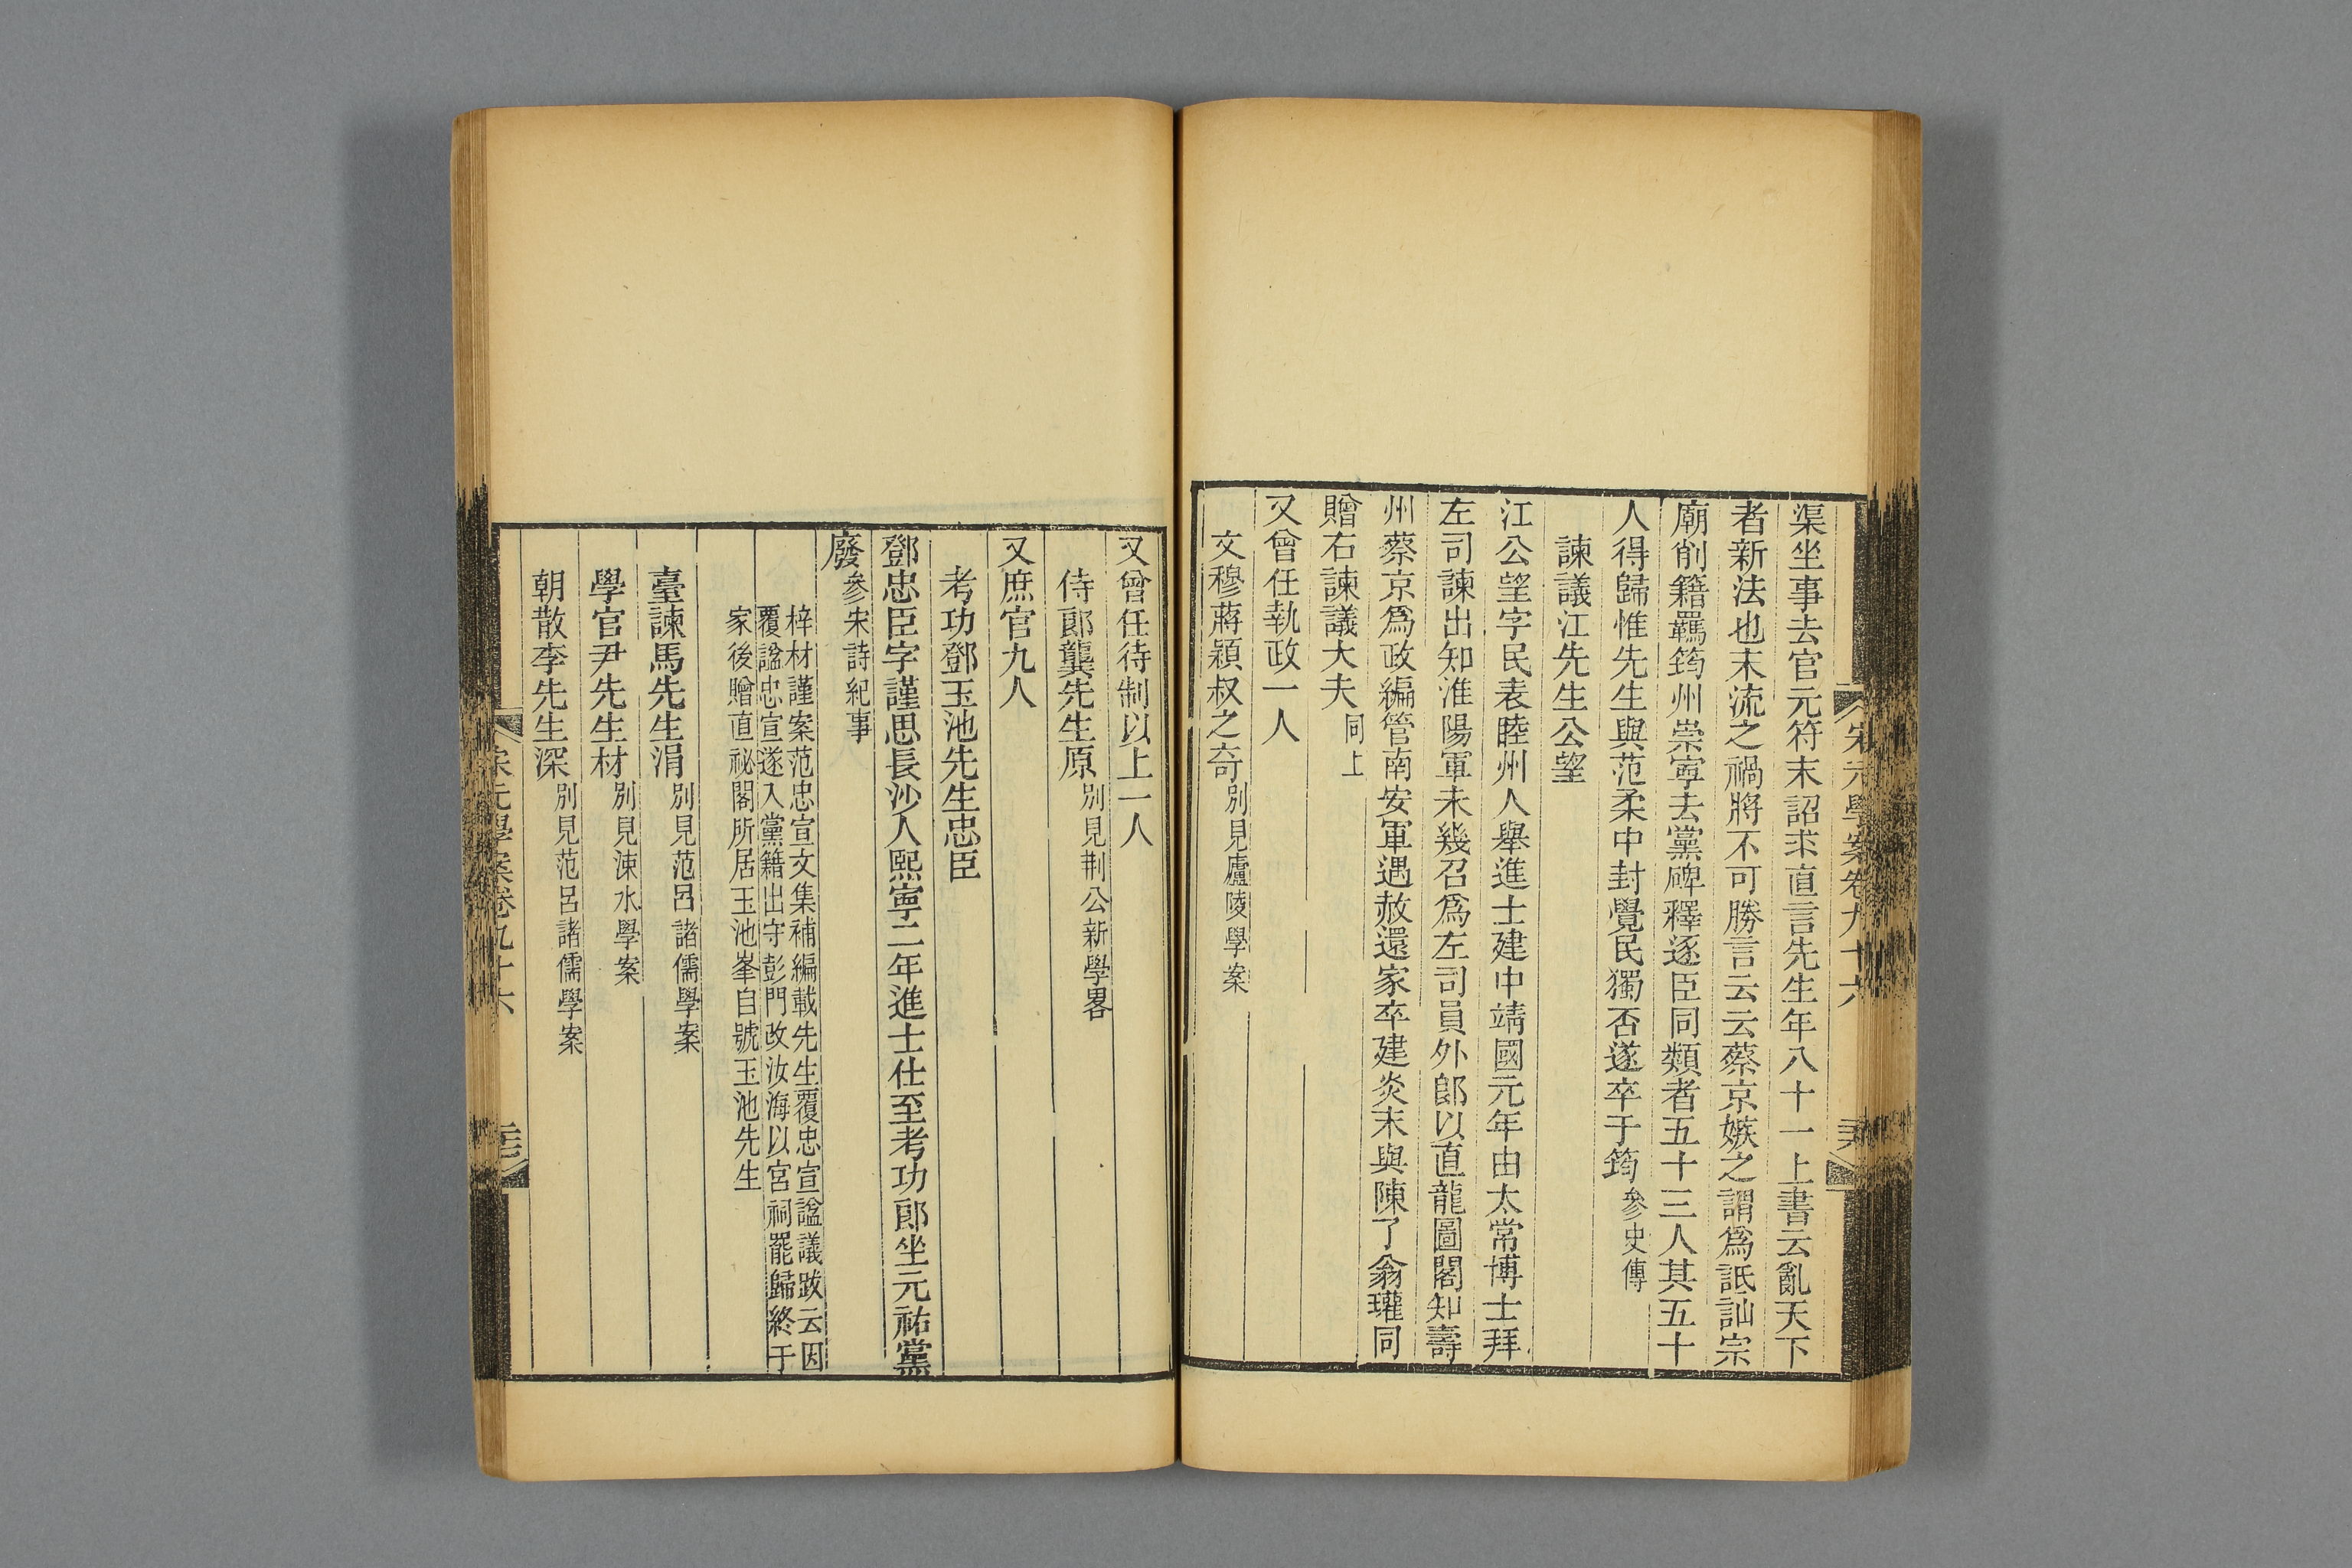 渠坐事去官元符末詔求直言先生年八十一上書云亂天下
者新法也末流之禍將不可勝言云云蔡京嫉之謂爲詆訕宗
廟削籍羈筠州崇寧去黨碑釋逐臣同類者五十三人其五十
人得歸惟先生與范柔中封覺民獨否遂卒于筠參史傳
諫議江先生公望
江公望字民表睦州人舉進士建中靖國元年由太常博士拜
左司諫出知淮陽軍未幾召爲左司員外郎以直龍圖閣知壽
州蔡京爲政編管南安軍遇赦還家卒建炎末與陳了翁瓘同
贈右諫議大夫同上
又曾任執政一人
文穆蔣穎叔之奇別見廬陵學案
宋元學案卷九十六
又曾任待制以上一人
侍郎龔先生原別見荆公新學畧
又庶官九人
考功鄧玉池先生忠臣
鄧忠臣字謹思長沙人熙寧二年進士仕至考功郎坐元祐黨
廢參宋詩紀事
梓材謹案范忠宣文集補編載先生覆忠宣諡議跋云因
覆諡忠宣遂入黨籍出守彭門改汝海以宮祠罷歸終于
家後贈直祕閣所居玉池峯自號玉池先生
臺諫馬先生涓別見范呂諸儒學案
學官尹先生材別見涑水學案
朝散李先生深別見范呂諸儒學案
宋元學案卷九十六